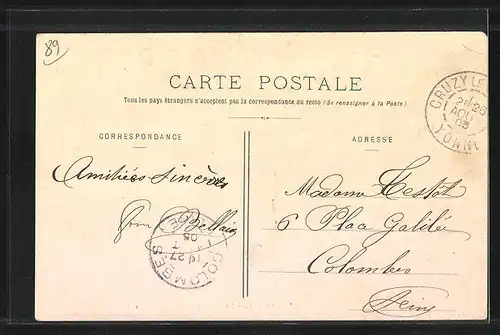 89
CARTE POSTALE
Tous les pays étrangers n'acceptent pas la correspondance au recto (Se renseigner à la Poste)
CORRESPONDANCE
ADRESSE
CRUZY LE
26
AOU
05
YONNE
Amitiés sincères
Madame Testot
6 Place Galilée
Colombes
Seine
COLOMBES
27
05
SEINE